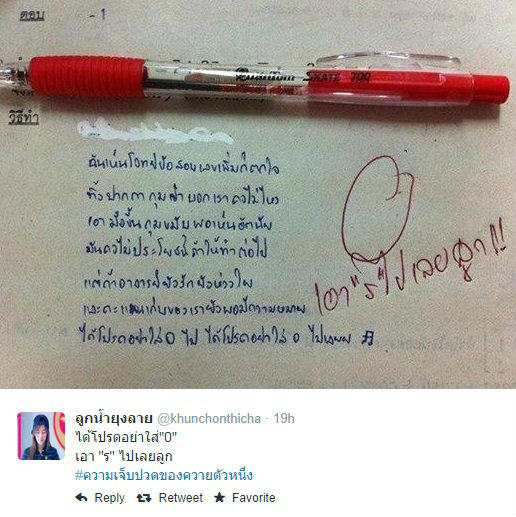 ตอบ -1
Quantum SKATE 700
วิธีทำ
ฉันเห็นโจทย์ข้อสอบเลขเริ่มก็ตกใจ
ทิ้งปากกากุมขมับบอกเราคงไม่ไหว
เอามือขึ้นกุมขมับ พอเห็นอัตนัย
มันคงไม่ประโยชน์ถ้าให้ทำต่อไป
แต่ถ้าอาจารย์ยังรักยังห่วงใย
และคะแนนเก็บของเรายังพอมีความหมาย
ได้โปรดอย่าใส่ 0 ไป ได้โปรดอย่าใส่ 0 ไปเลยย ♫
0
เอา "ร" ไปเลยลูก!!
ลูกน้ำยุงลาย @khunchonthicha · 19h
ได้โปรดอย่าใส่"0"
เอา "ร" ไปเลยลูก
#ความเจ็บปวดของควายตัวหนึ่ง
Reply Retweet Favorite